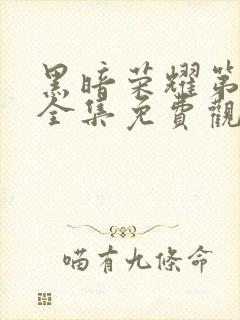 黑暗荣耀第
全集免費觀
喵有九條命